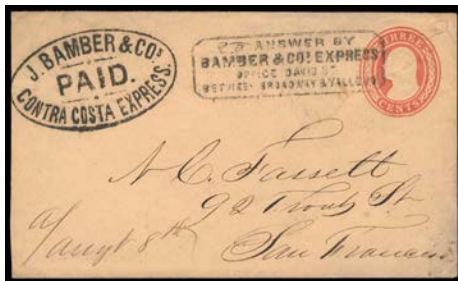 J. BAMBER & CO'S
PAID.
CONTRA COSTA EXPRESS.
ANSWER BY
BAMBER & CO'S EXPRESS
OFFICE DAVIS ST
BETWEEN BROADWAY & VALLEJO
THREE
CENTS
N C. Fassett
92 Front St
San Francisco
a/
augt 8th